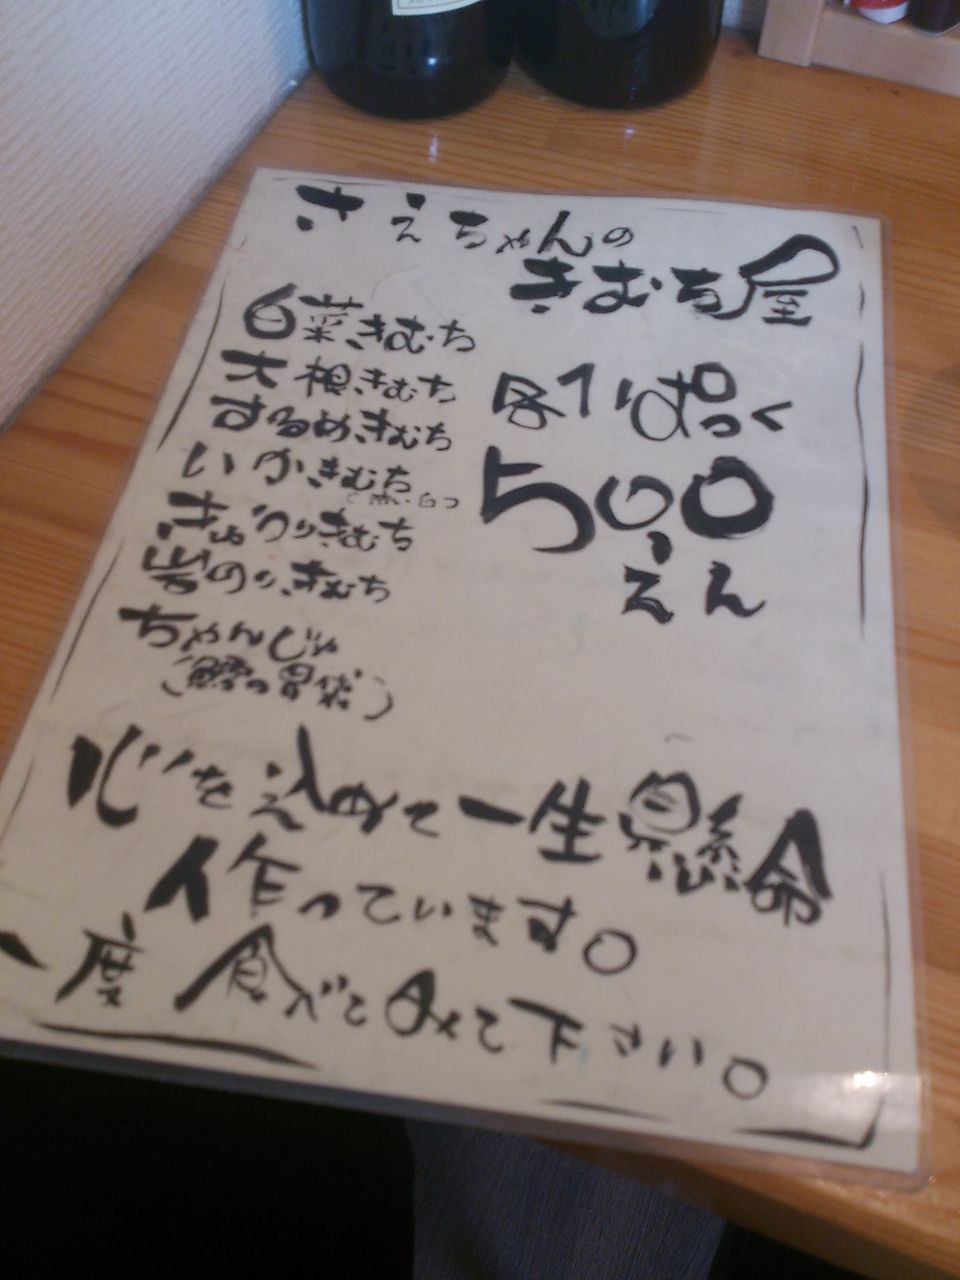 さえちゃんの
きむち屋
白菜きむち
大根きむち
するめきむち
いかきむち
きゅうりきむち
岩のりきむち
ちゃんじゃ
(鱈の胃袋)
各1ぱっく
500
えん
心を込めて一生懸命
作っています。
一度食べてみて下さい。